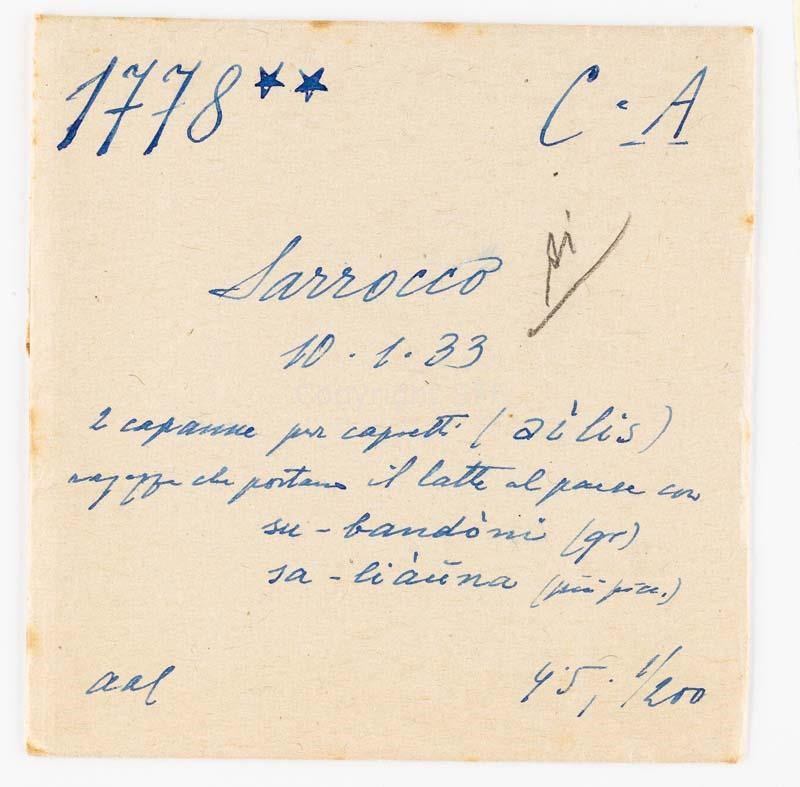 1778★★ C = A
si
Sarrocco
10.1.33
2 capanne per capretti (aìlis)
ragazze che portano il latte al paese con
su-bandòni (gr)
sa-liàuna (più picc.)
aal 45; 1/200